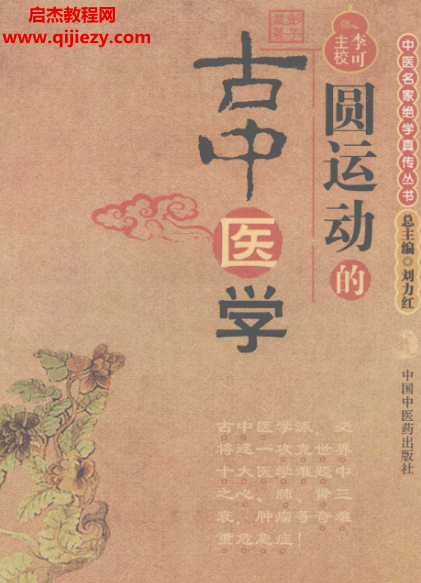 启杰教程网
www.qijiezy.com
李可
主校
中医名家绝学真传丛书
总主编◎刘力红
圆运动的
古中医学
中国中医药出版社
古中医学派，必
将逐一攻克世界
十大医学难题中
之心、肺、肾三
衰，肿瘤等奇难
重危急症！